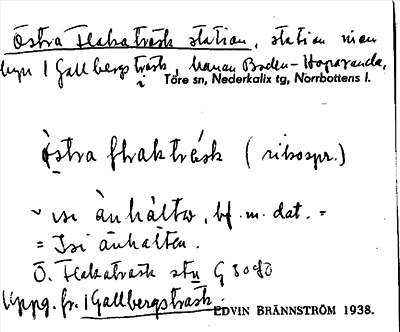 Östra Flakaträsk station, station inom
byn Gallbergsträsk, banan Boden–Haparanda,
i Töre sn, Nederkalix tg, Norrbottens l.
östra flakträsk (riksspr.)
àn hàlta, bf. m. dat. =
= anhalten.
Ö. Flakaträsk stn G 8090
Uppg. fr. Gallbergsträsk.
EDVIN BRÄNNSTRÖM 1938.